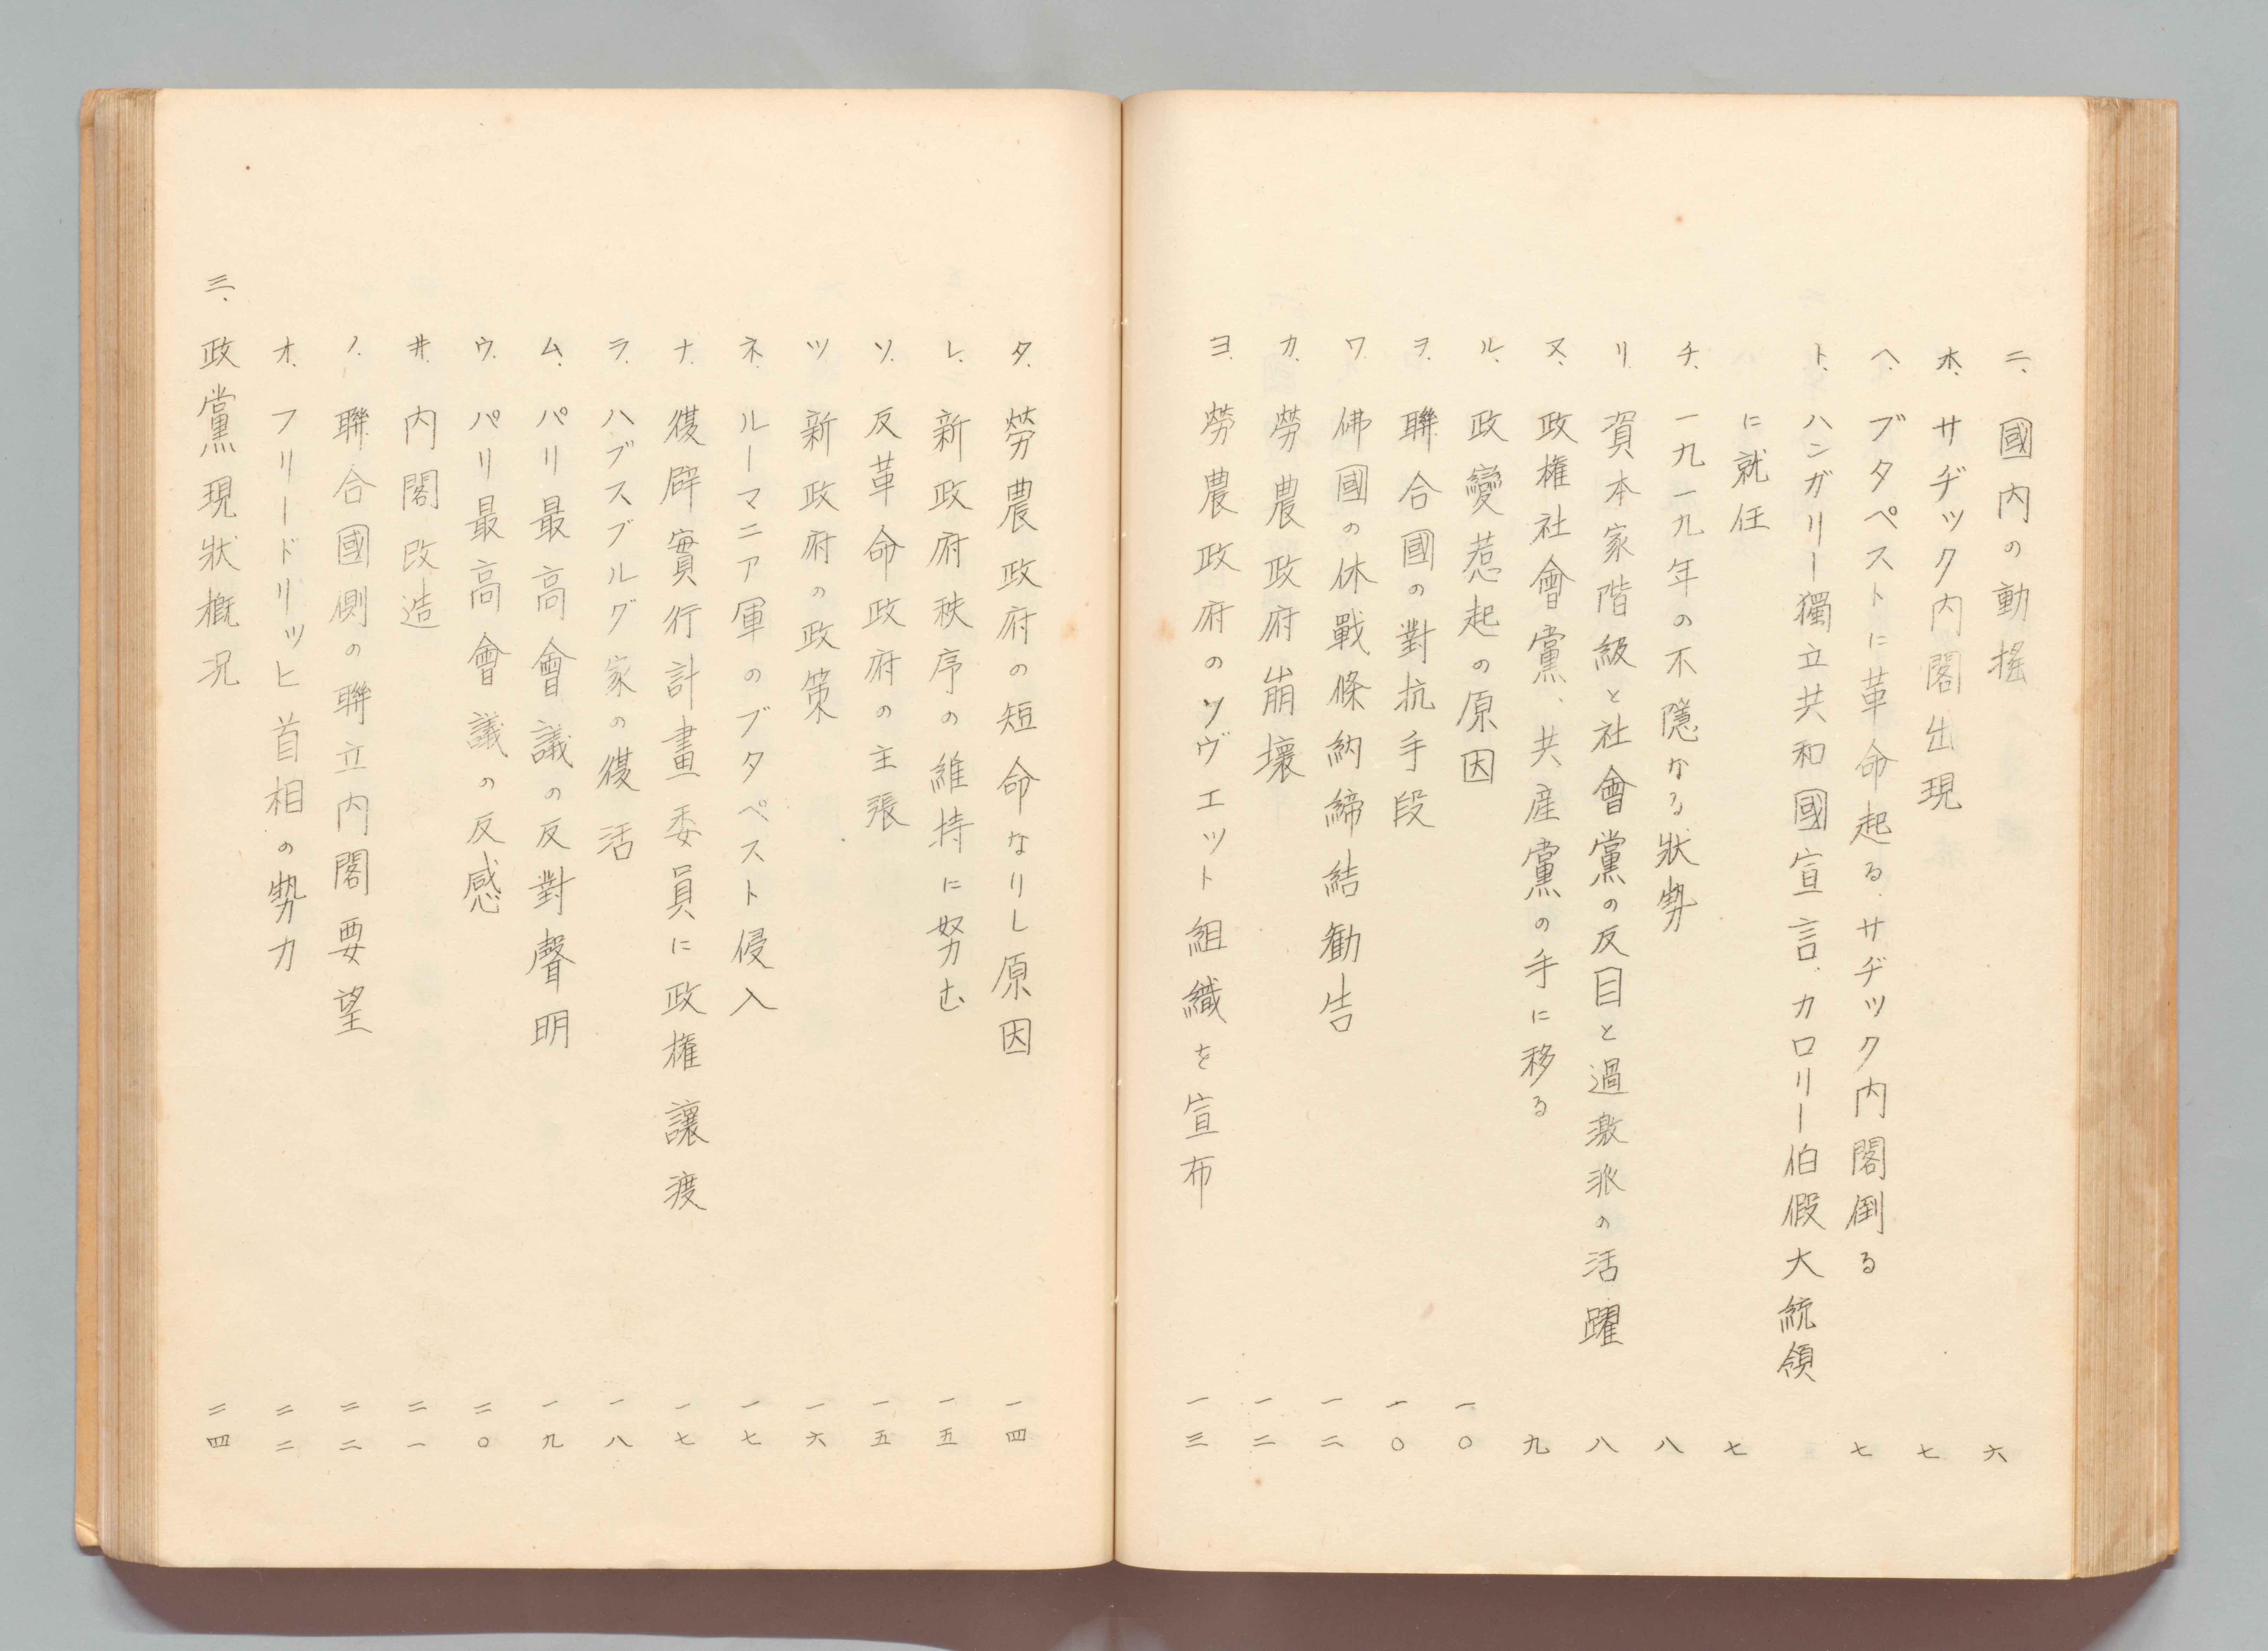 ニ、國内の動搖 六
ホ、サヂック内閣出現 七
ヘ、ブタペストに革命起る、サヂック内閣倒る 七
ト、ハンガリー獨立共和國宣言、カロリー伯假大統領
に就任 七
チ、一九一九年の不隱なる狀勢 八
リ、資本家階級と社會黨の反目と過激派の活躍 八
ヌ、政権社會黨、共産黨の手に移る 九
ル、政變惹起の原因 一〇
ヲ、聯合國の對抗手段 一〇
ワ、佛國の休戰條約締結勧告 一二
カ、勞農政府崩壞 一二
ヨ、勞農政府のソヴエット組織を宣布 一三
タ、勞農政府の短命なりし原因 一四
レ、新政府秩序の維持に努む 一五
ソ、反革命政府の主張 一五
ツ、新政府の政策 一六
ネ、ルーマニア軍のブタペスト侵入 一七
ナ、復辟實行計畫委員に政権讓渡 一七
ラ、ハブスブルグ家の復活 一八
ム、パリ最高會議の反對聲明 一九
ウ、パリ最高會議の反感 二〇
ヰ、内閣改造 二一
ノ、聯合國側の聯立内閣要望 二二
オ、フリードリッヒ首相の勢力 二二
三、政黨現狀概況 二四